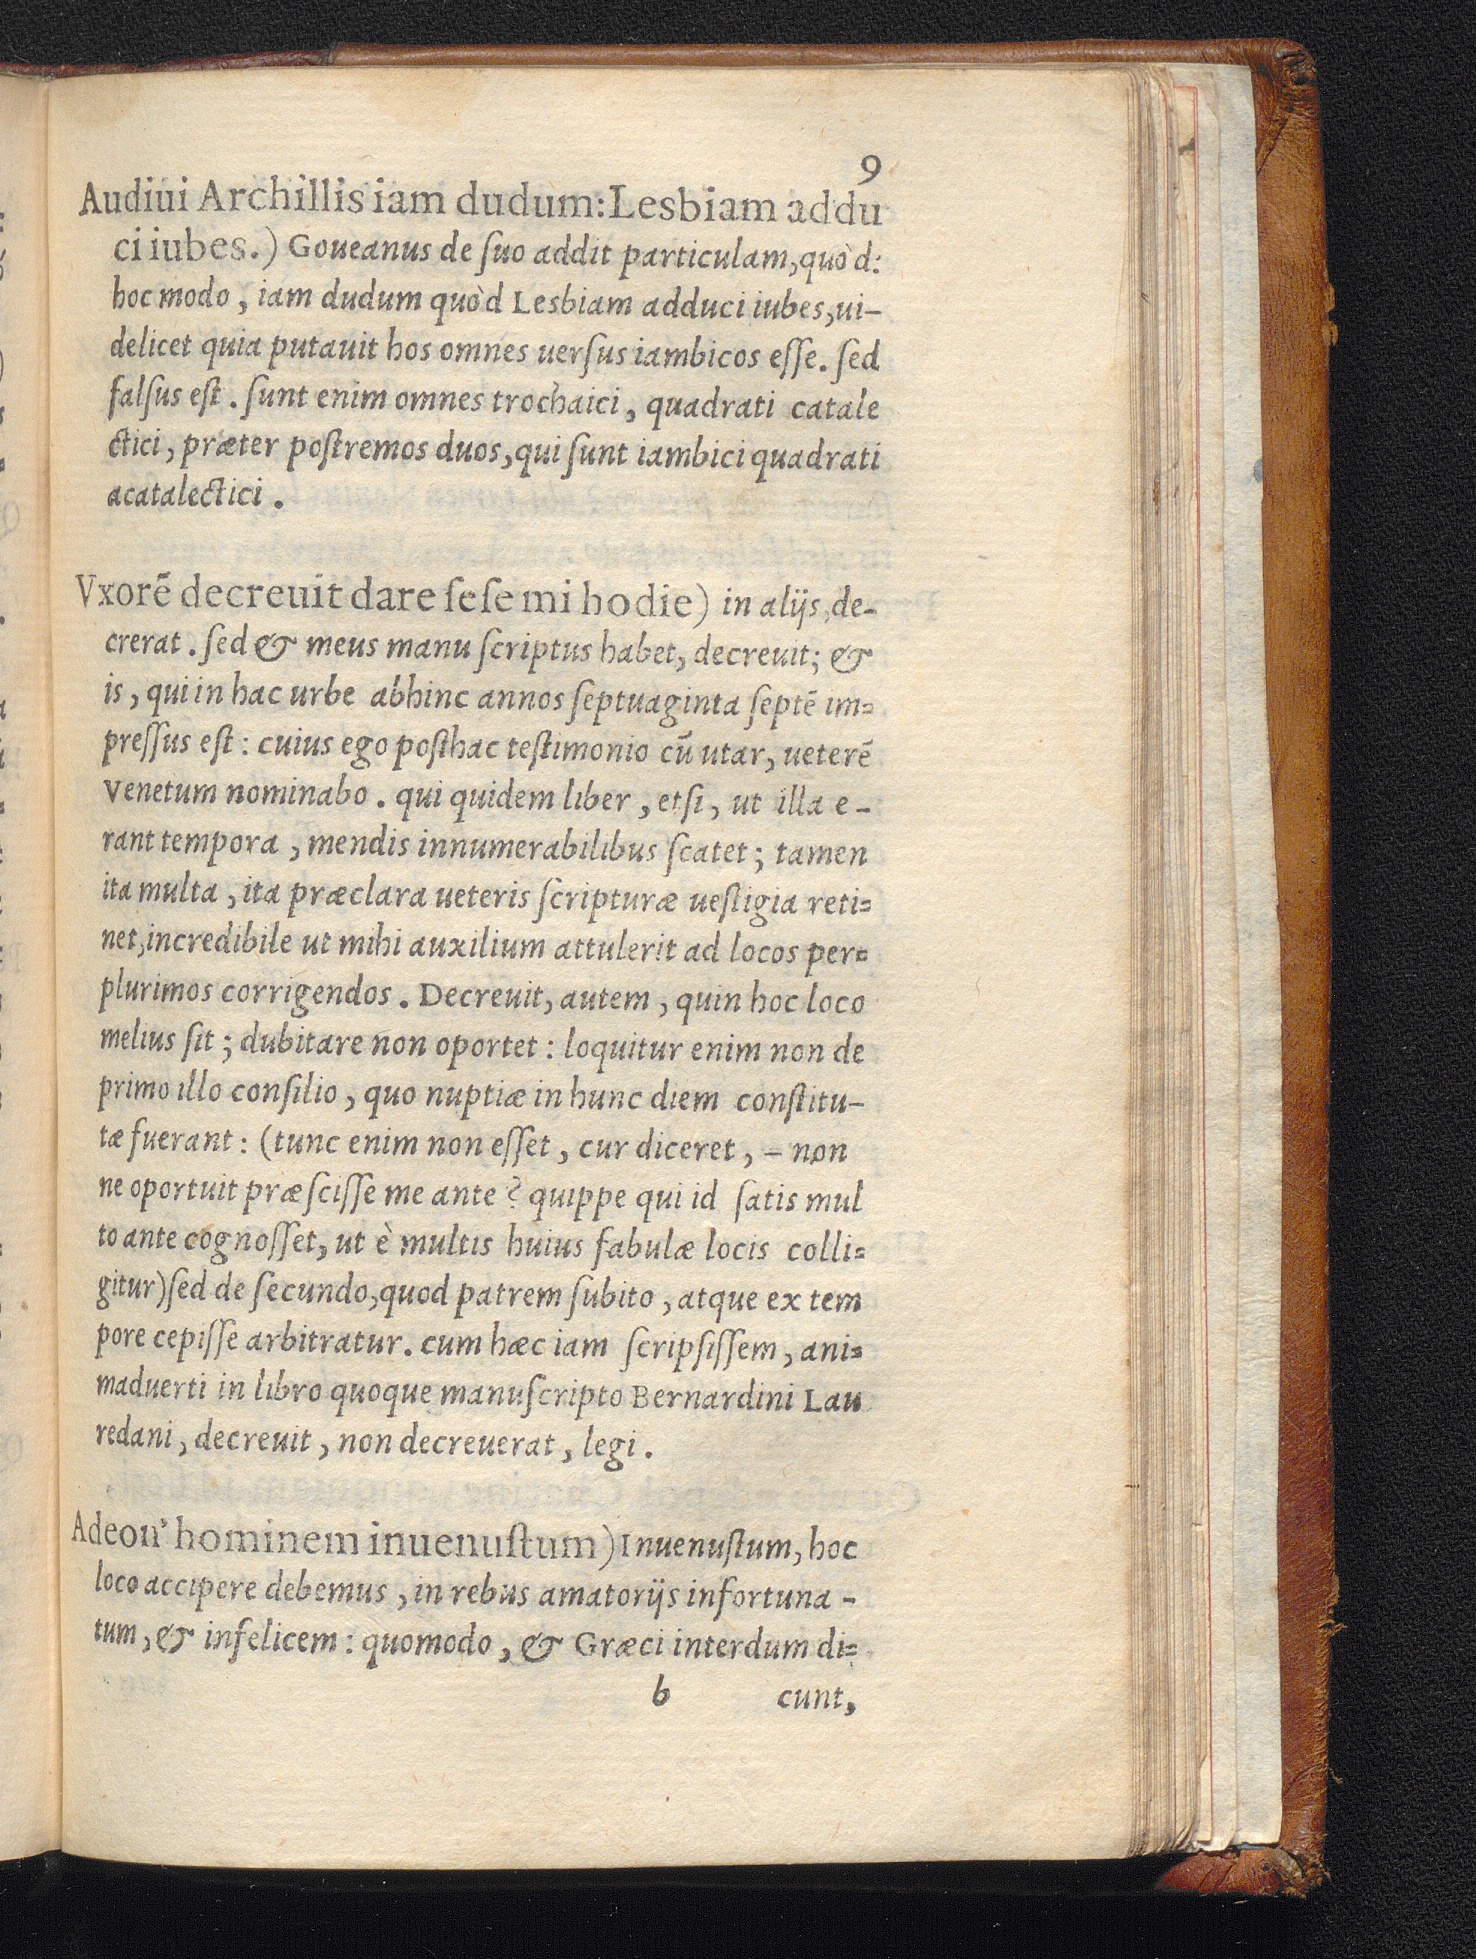 9
Audiui Archillis iam dudum: Lesbiam addu
ci iubes.) Goueanus de ſuo addit particulam, quòd:
hoc modo, iam dudum quòd Lesbiam adduci iubes, ui-
delicet quia putauit hos omnes uerſus iambicos eſſe. ſed
falſus eſt. ſunt enim omnes trochaici, quadrati catale
ctici, præter poſtremos duos, qui ſunt iambici quadrati
acatalectici.
Vxorē decreuit dare ſeſe mi hodie) in alijs, de-
crerat. ſed & meus manu ſcriptus habet, decreuit; &
is, qui in hac urbe abhinc annos ſeptuaginta ſeptē im-
preſſus eſt: cuius ego poſthac teſtimonio cū utar, ueterē
Venetum nominabo. qui quidem liber, etſi, ut illa e-
rant tempora, mendis innumerabilibus ſcatet; tamen
ita multa, ita præclara ueteris ſcripturæ ueſtigia reti-
net, incredibile ut mihi auxilium attulerit ad locos per-
plurimos corrigendos. Decreuit, autem, quin hoc loco
melius ſit; dubitare non oportet: loquitur enim non de
primo illo conſilio, quo nuptiæ in hunc diem conſtitu-
tæ fuerant: (tunc enim non eſſet, cur diceret, – non
ne oportuit præſciſſe me ante? quippe qui id ſatis mul
to ante cognoſſet, ut è multis huius fabulæ locis colli-
gitur) ſed de ſecundo, quod patrem ſubito, atque ex tem
pore cepiſſe arbitratur. cum hæc iam ſcripſiſſem, ani-
maduerti in libro quoque manuſcripto Bernardini Lau
redani, decreuit, non decreuerat, legi.
Adeon' hominem inuenuſtum) Inuenuſtum, hoc
loco accipere debemus, in rebus amatorijs infortuna-
tum, & infelicem: quomodo, & Græci interdum di-
b cunt,